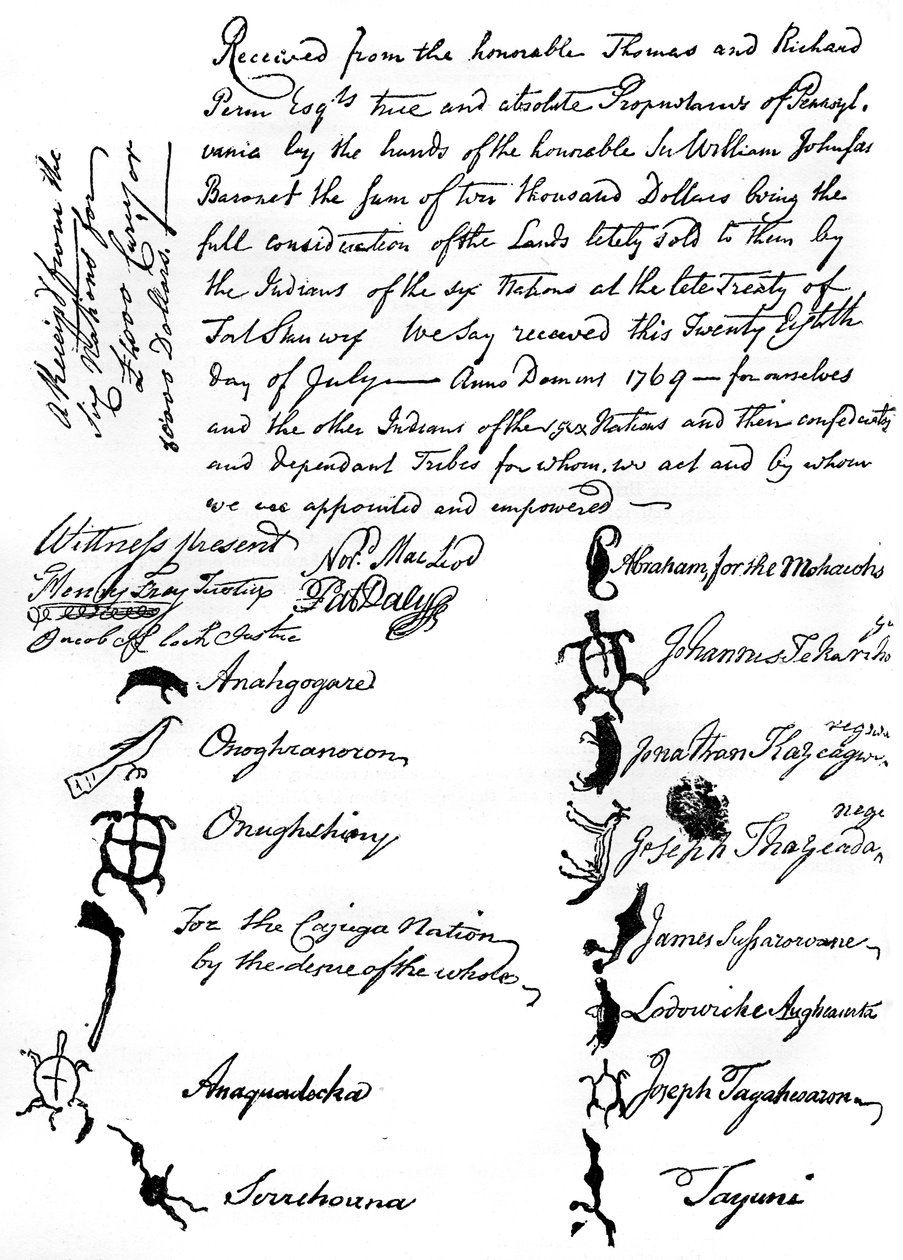 Received from the honorable Thomas and Richard
Penn Esqrs true and absolute Proprietaries of Pensyl.
vania by the hands of the honorable Sir William Johnson
Baronet the sum of ten thousand Dollars being the
full consideration of the Lands lately sold to them by
the Indians of the six Nations at the late Treaty of
Fort Stanwix We say received this Twenty Eighth
day of July — Anno Domini 1769 — for ourselves
and the other Indians of the six Nations and their confederates
and dependant Tribes for whom we act and by whom
we are appointed and empowered —
A Receipt from the
Six Nations for
10000 Dollars.
Wittness present
Henry Fray Justice
Jacob Justice
Nord. MacLeod
Pat Daly
Abraham, for the Mohawks
Johannes Tekariho
ga
Jonathan
Joseph
James
Lodowicke
Joseph
Tayuni
Anahgogare
Onoghranoron
For the Cajuga Nation
by the desire of the whole
Anaquadecka
Serrehoana